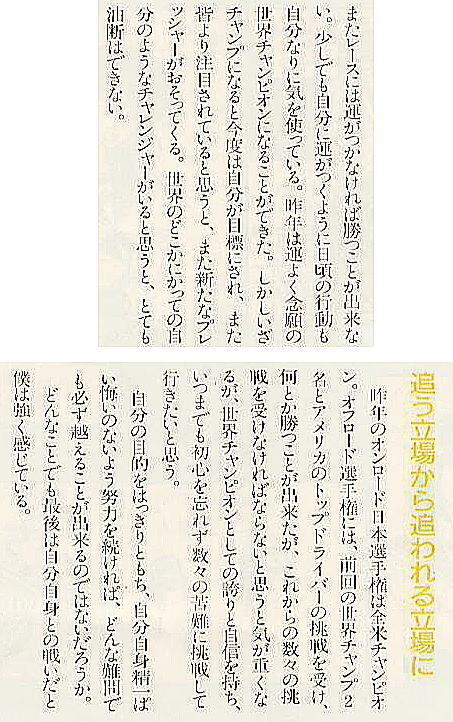 またレースには運がつかなければ勝つことが出来な
い。少しでも自分に運がつくように日頃の行動も
自分なりに気を使っている。昨年は運よく念願の
世界チャンピオンになることができた。しかしいざ
チャンプになると今度は自分が目標にされ、また
皆より注目されていると思うと、また新たなプレ
ッシャーがおそってくる。世界のどこかにかっての自
分のようなチャレンジャーがいると思うと、とても
油断はできない。
追う立場から追われる立場に
昨年のオンロード日本選手権は全米チャンピオ
ン。オフロード選手権には、前回の世界チャンプ2
名とアメリカのトップドライバーの挑戦を受け、
何とか勝つことが出来たが、これからの数々の挑
戦を受けなければならないと思うと気が重くな
るが、世界チャンピオンとしての誇りと自信を持ち、
いつまでも初心を忘れず数々の苦難に挑戦して
行きたいと思う。
自分の目的をはっきりともち、自分自身精一ぱ
い悔いのないよう努力を続ければ、どんな難問で
も必ず越えることが出来るのではないだろうか。
どんなことでも最後は自分自身との戦いだと
僕は強く感じている。